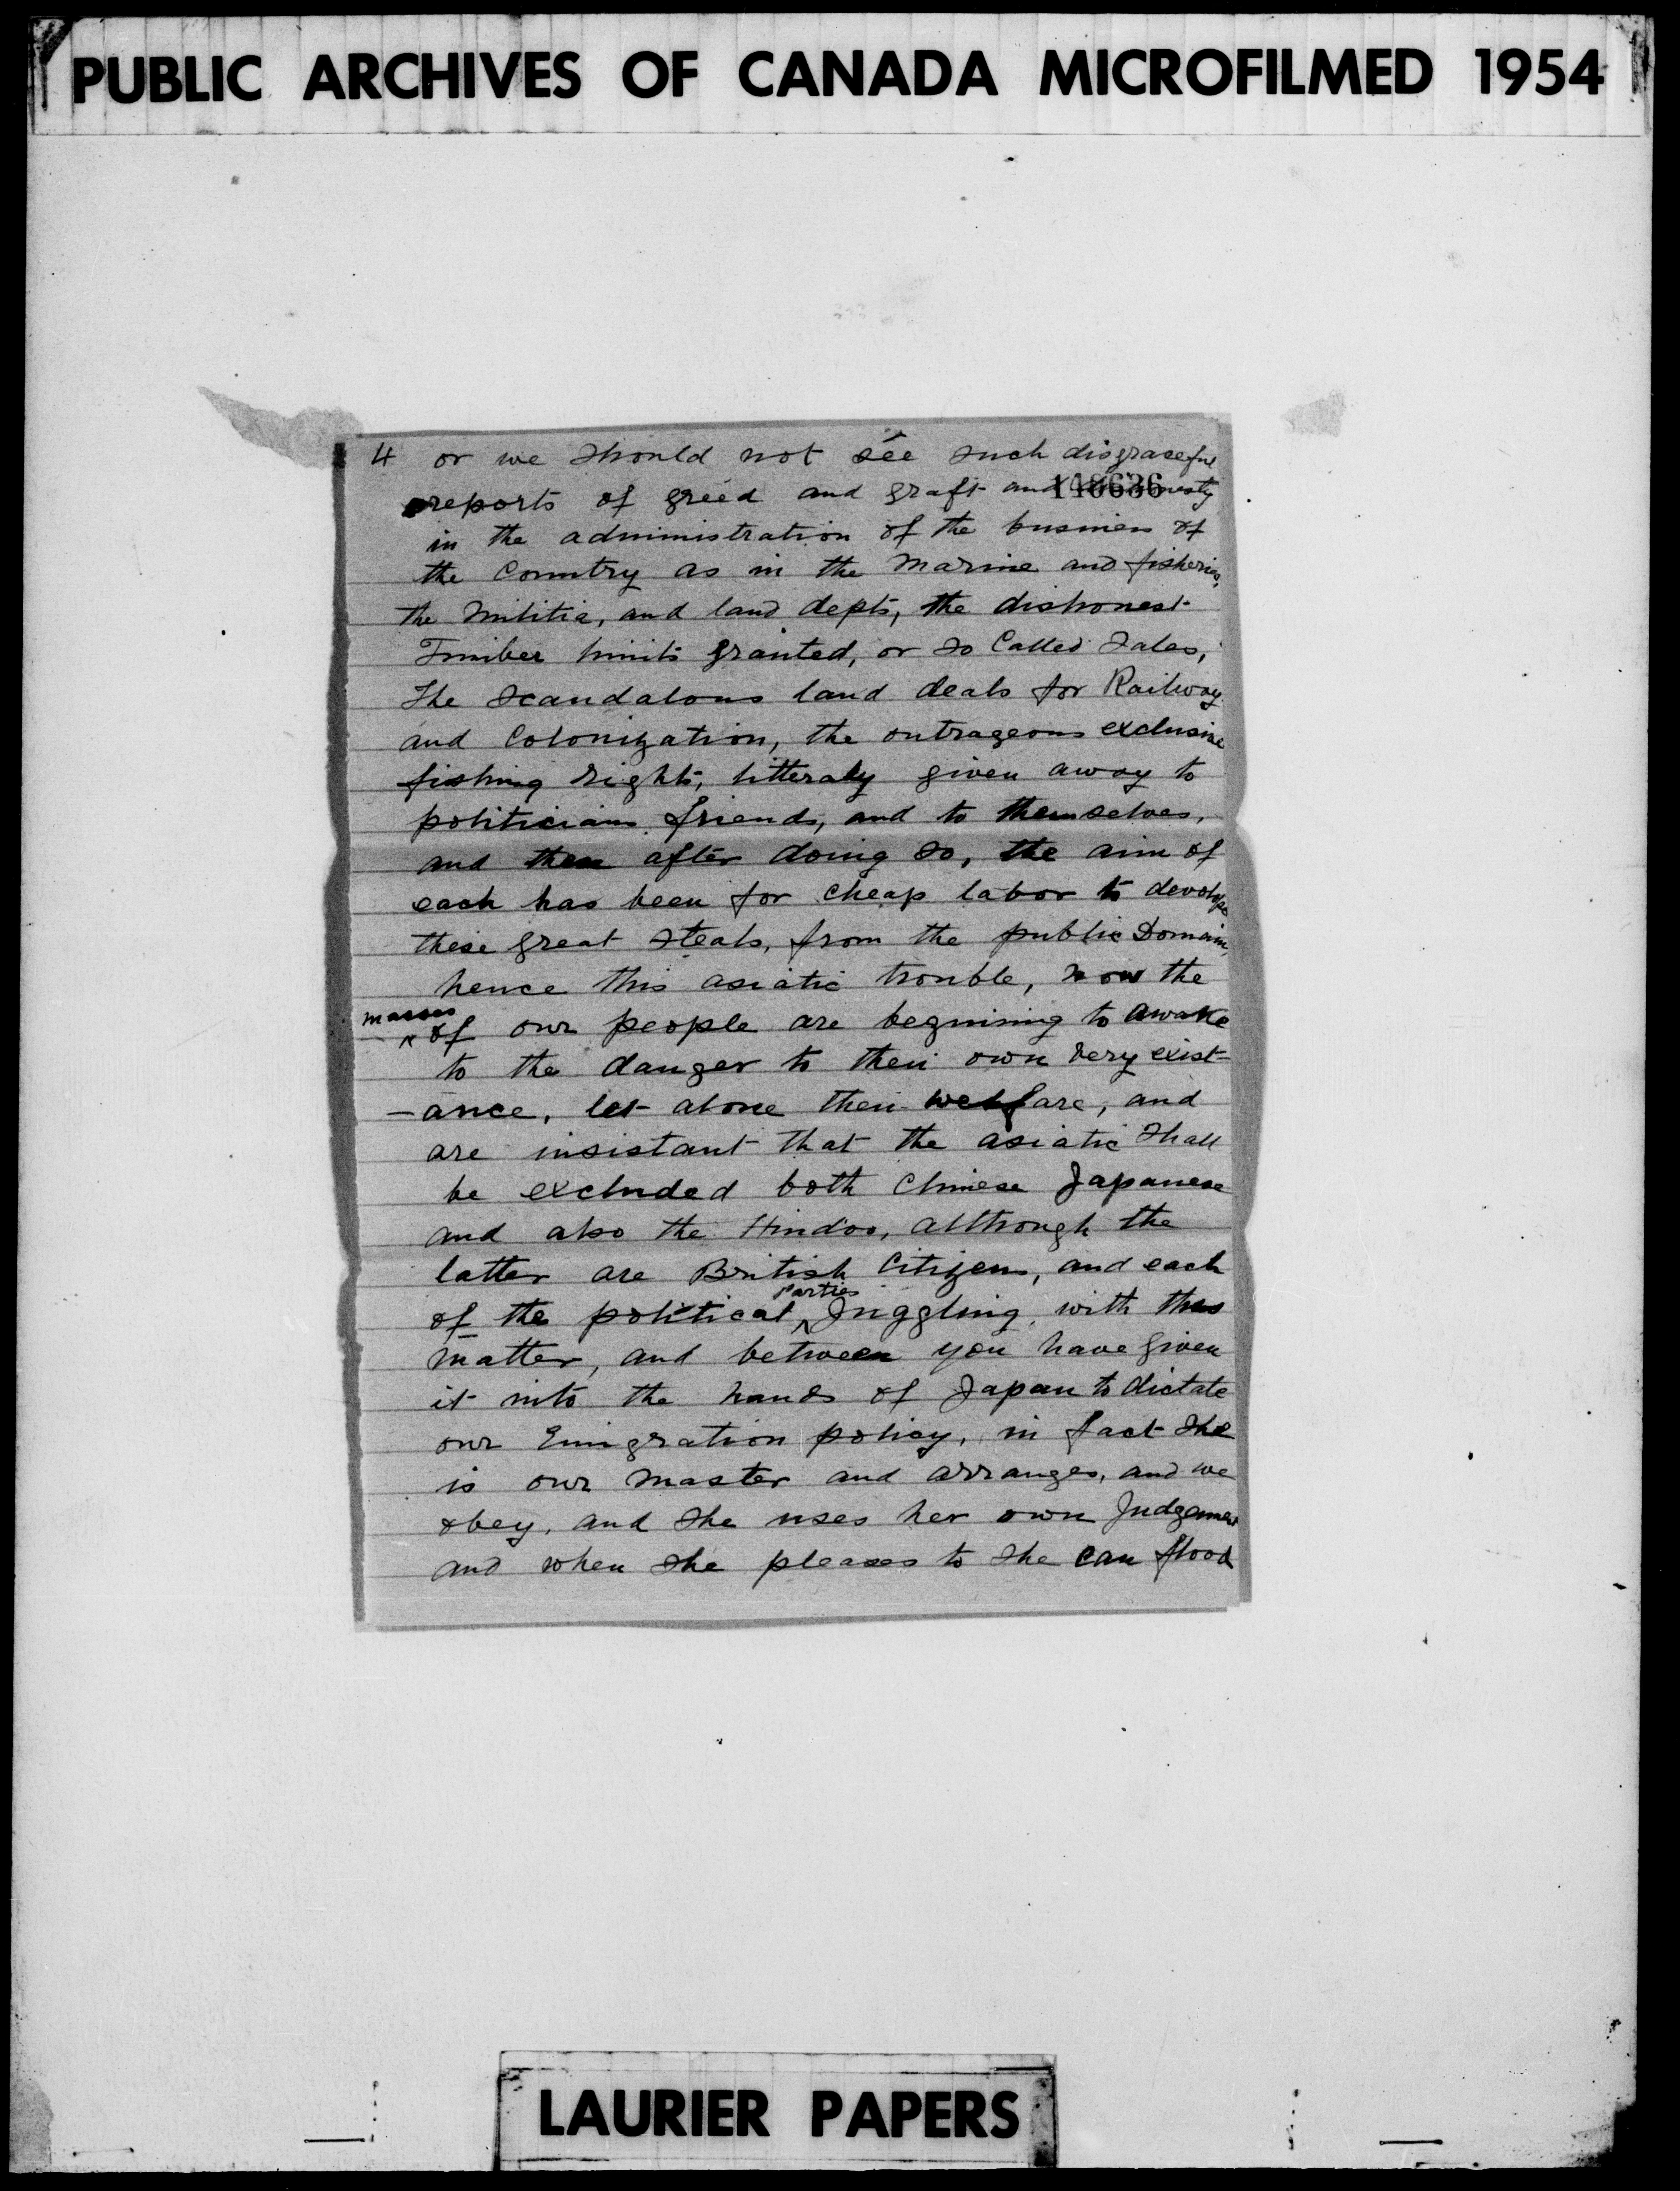 PUBLIC ARCHIVES OF CANADA MICROFILMED 1954
4 or we should not see such disgraceful
reports of greed and graft and
148636
in the administration of the business of
the Country as in the Marine and fisheries,
the Militia, and land depts, the dishonest
Timber limits granted, or so Called Sales,
The Scandalous land deals for Railway
and Colonization, the outrageous exclusive
fishing rights, litteraly given away to
politicians friends, and to themselves,
and then after doing so, the aim of
each has been for cheap labor to develope
these great Steals, from the public Domain,
hence this asiatic trouble, now the
masses
of our people are beginning to awake
to the danger to their own very exist-
-ance, let alone their welfare, and
are insistant that the asiatic shall
be excluded both Chinese Japanese
and also the Hindoo, although the
latter are British Citizens, and each
parties
of the political Juggling, with this
matter, and between you have given
it into the hands of Japan to dictate
our Emigration policy, in fact she
is our master and arranges, and we
obey, and she uses her own Judgement
and when she pleases to she can flood
LAURIER PAPERS